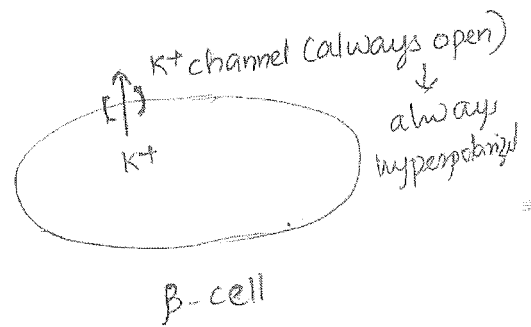 K+ channel (always open)
↓
always
hyperpolarized
K+
β-cell